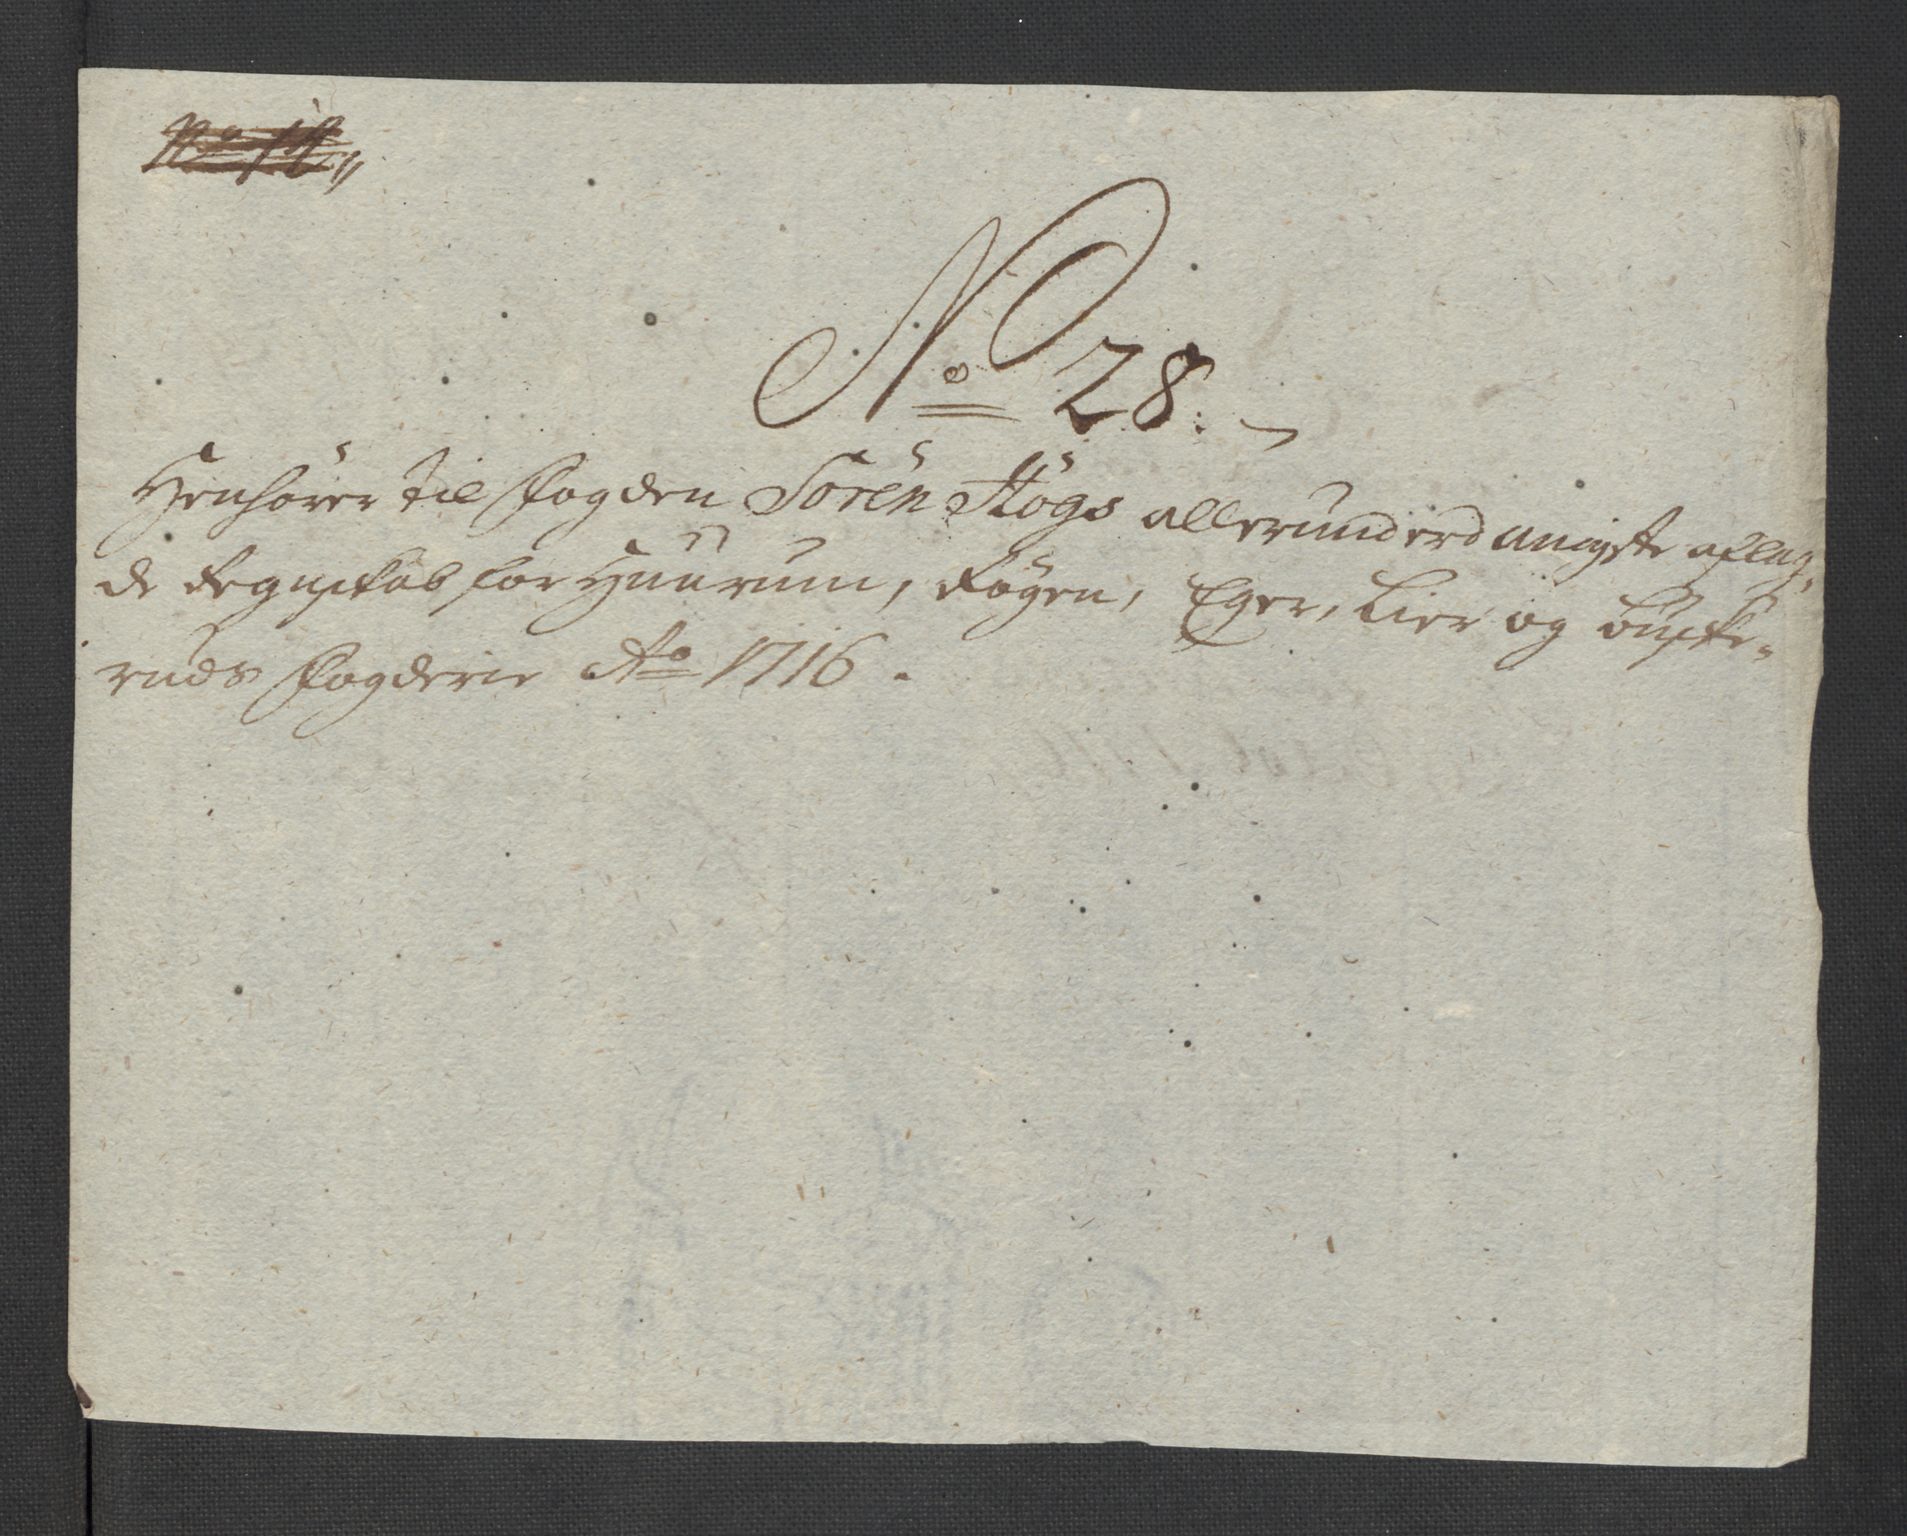 No 28.
Henhörer til fogden Sören Högs allerunderdanigste aflag,
de Regnskab for Huurum, Röyen, Eger, Lier og Buske-
ruds fogderie Ao 1716.